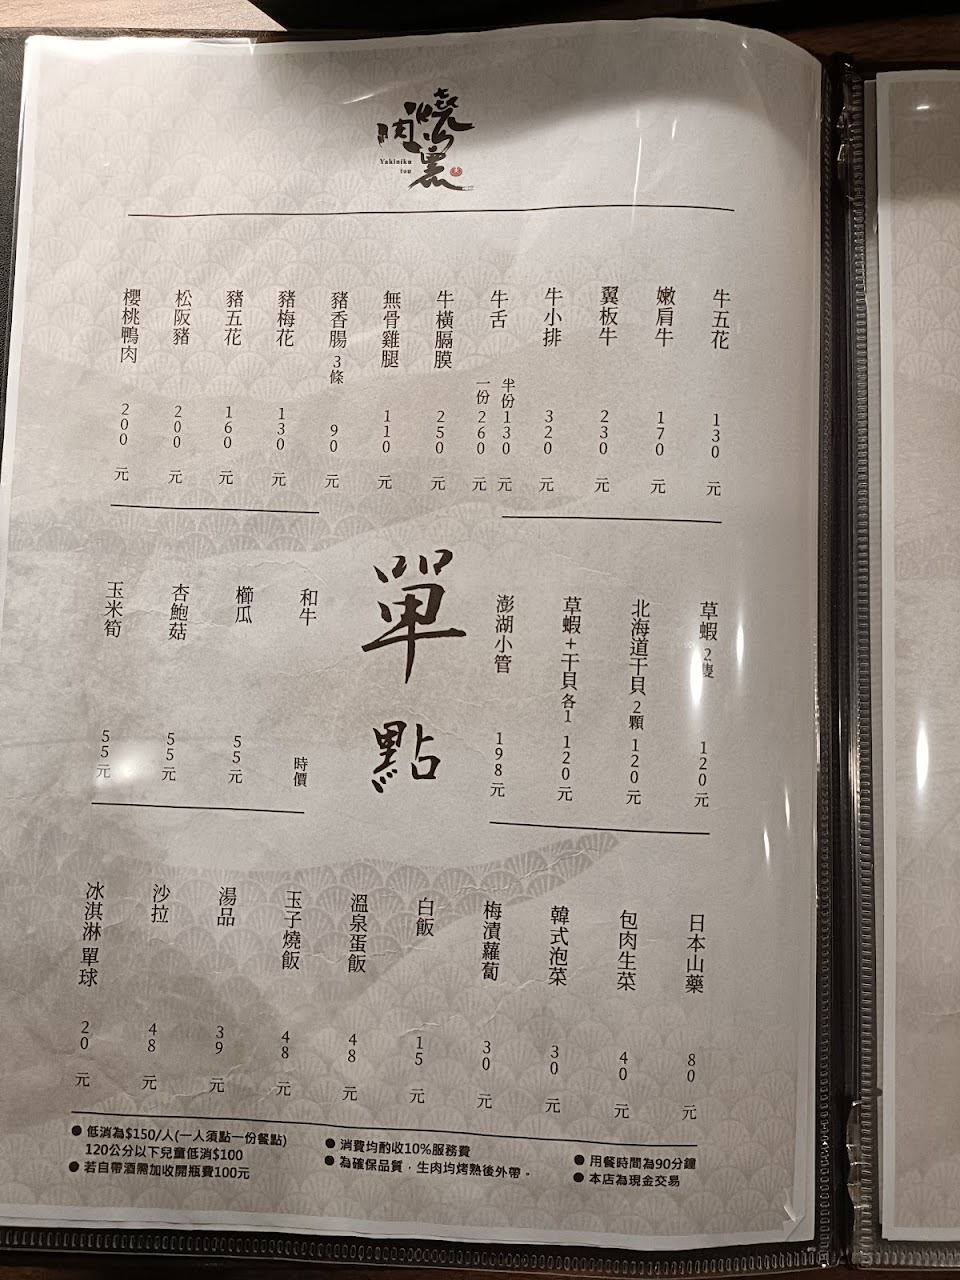 燒肉黑
Yakiniku
tou
牛五花 130元
嫩肩牛 170元
翼板牛 230元
牛小排 320元
牛舌 半份130元
一份260元
牛橫膈膜 250元
無骨雞腿 110元
豬香腸 3條 90元
豬梅花 130元
豬五花 160元
松阪豬 200元
櫻桃鴨肉 200元
單點
草蝦 2隻 120元
北海道干貝 2顆 120元
草蝦+干貝 各1 120元
澎湖小管 198元
和牛 時價
櫛瓜 55元
杏鮑菇 55元
玉米筍 55元
日本山藥 80元
包肉生菜 40元
韓式泡菜 30元
梅漬蘿蔔 30元
白飯 15元
溫泉蛋飯 48元
玉子燒飯 48元
湯品 39元
沙拉 48元
冰淇淋 單球 20元
● 低消為$150/人(一人須點一份餐點)
120公分以下兒童低消$100
● 若自帶酒需加收開瓶費100元
● 消費均酌收10%服務費
● 為確保品質，生肉均烤熟後外帶。
● 用餐時間為90分鐘
● 本店為現金交易